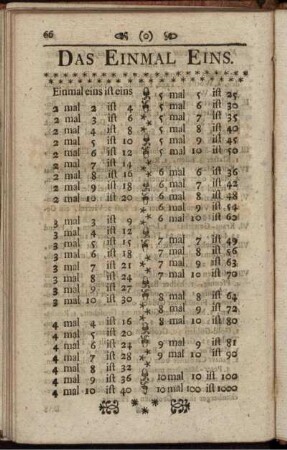 66 (o)
DAS EINMAL EINS.
Einmal eins ist eins
2 mal 2 ist 4
2 mal 3 ist 6
2 mal 4 ist 8
2 mal 5 ist 10
2 mal 6 ist 12
2 mal 7 ist 14
2 mal 8 ist 16
2 mal 9 ist 18
2 mal 10 ist 20
3 mal 3 ist 9
3 mal 4 ist 12
3 mal 5 ist 15
3 mal 6 ist 18
3 mal 7 ist 21
3 mal 8 ist 24
3 mal 9 ist 27
3 mal 10 ist 30
4 mal 4 ist 16
4 mal 5 ist 20
4 mal 6 ist 24
4 mal 7 ist 28
4 mal 8 ist 32
4 mal 9 ist 36
4 mal 10 ist 40
5 mal 5 ist 25
5 mal 6 ist 30
5 mal 7 ist 35
5 mal 8 ist 40
5 mal 9 ist 45
5 mal 10 ist 50
6 mal 6 ist 36
6 mal 7 ist 42
6 mal 8 ist 48
6 mal 9 ist 54
6 mal 10 ist 60
7 mal 7 ist 49
7 mal 8 ist 56
7 mal 9 ist 63
7 mal 10 ist 70
8 mal 8 ist 64
8 mal 9 ist 72
8 mal 10 ist 80
9 mal 9 ist 81
9 mal 10 ist 90
10 mal 10 ist 100
10 mal 100 ist 1000